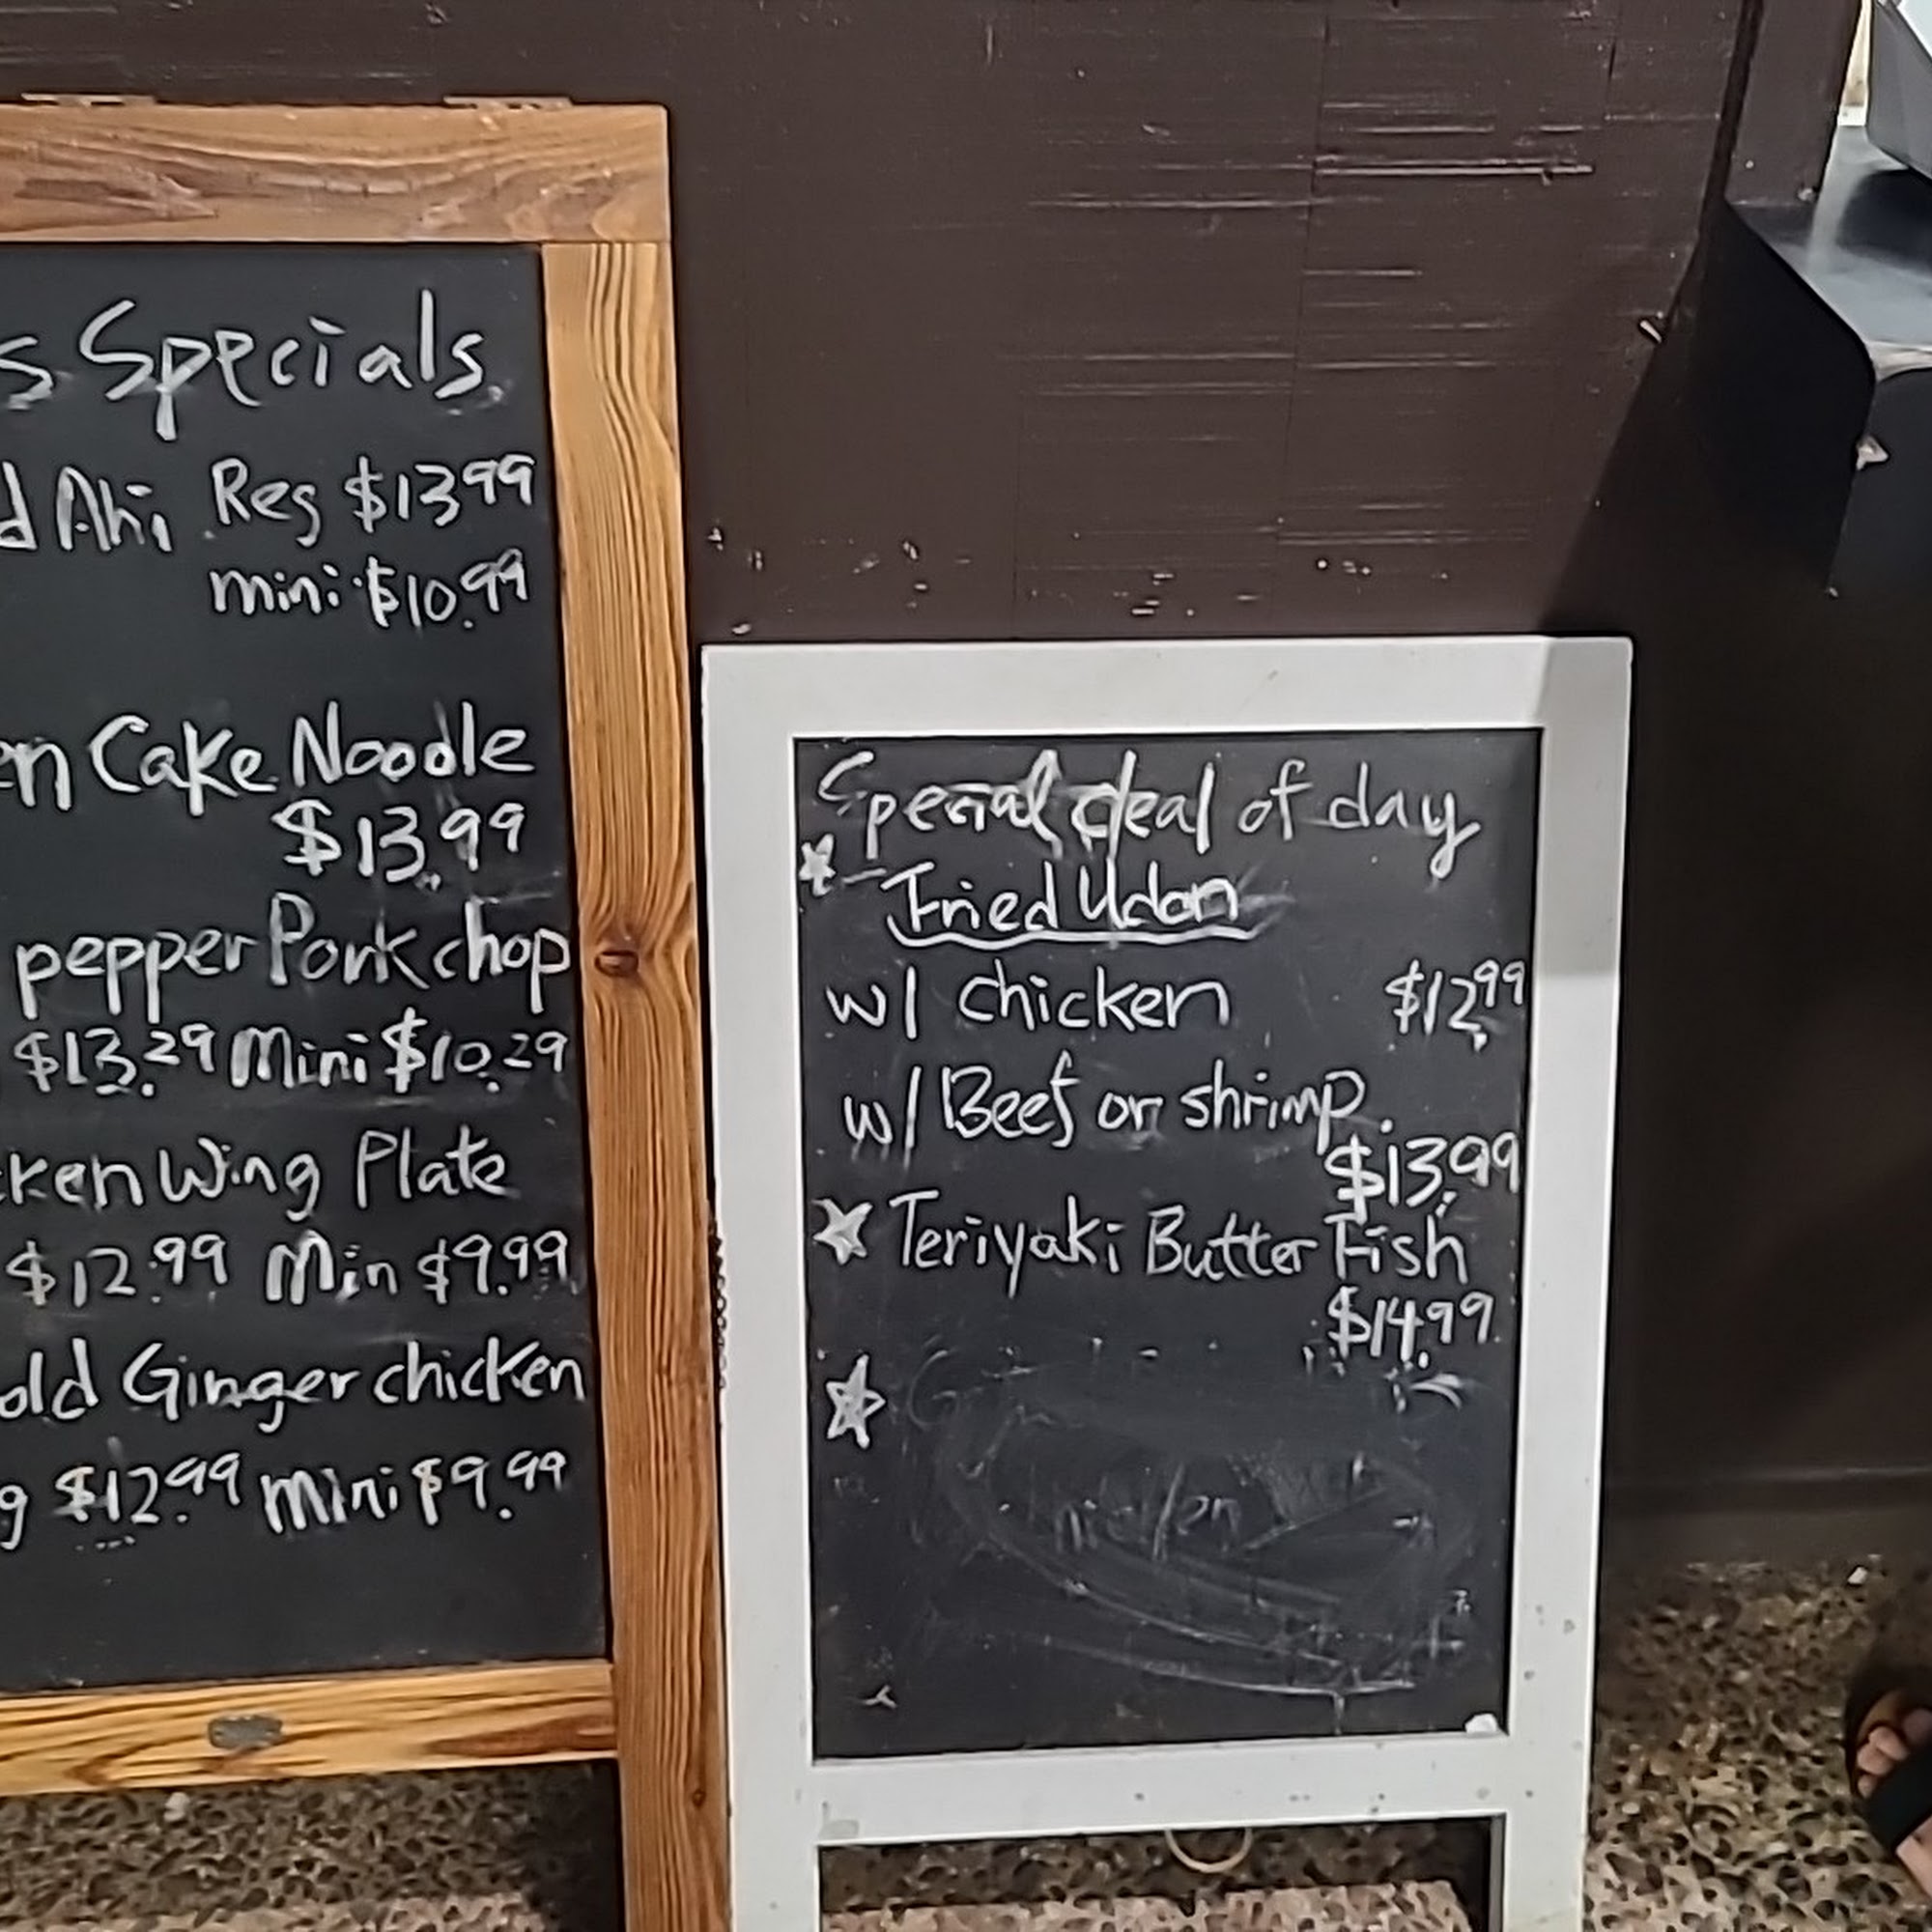 s Specials
d Ahi Reg $13.99
mini $10.99
en Cake Noodle
$13.99
pepper Pork chop
$13.29 Mini $10.29
cken Wing Plate
$12.99 Min $9.99
old Ginger chicken
g $12.99 mini $9.99
Special deal of day
Fried Udon
w/ chicken $12.99
w/ Beef or shrimp
$13.99
Teriyaki Butter Fish
$14.99